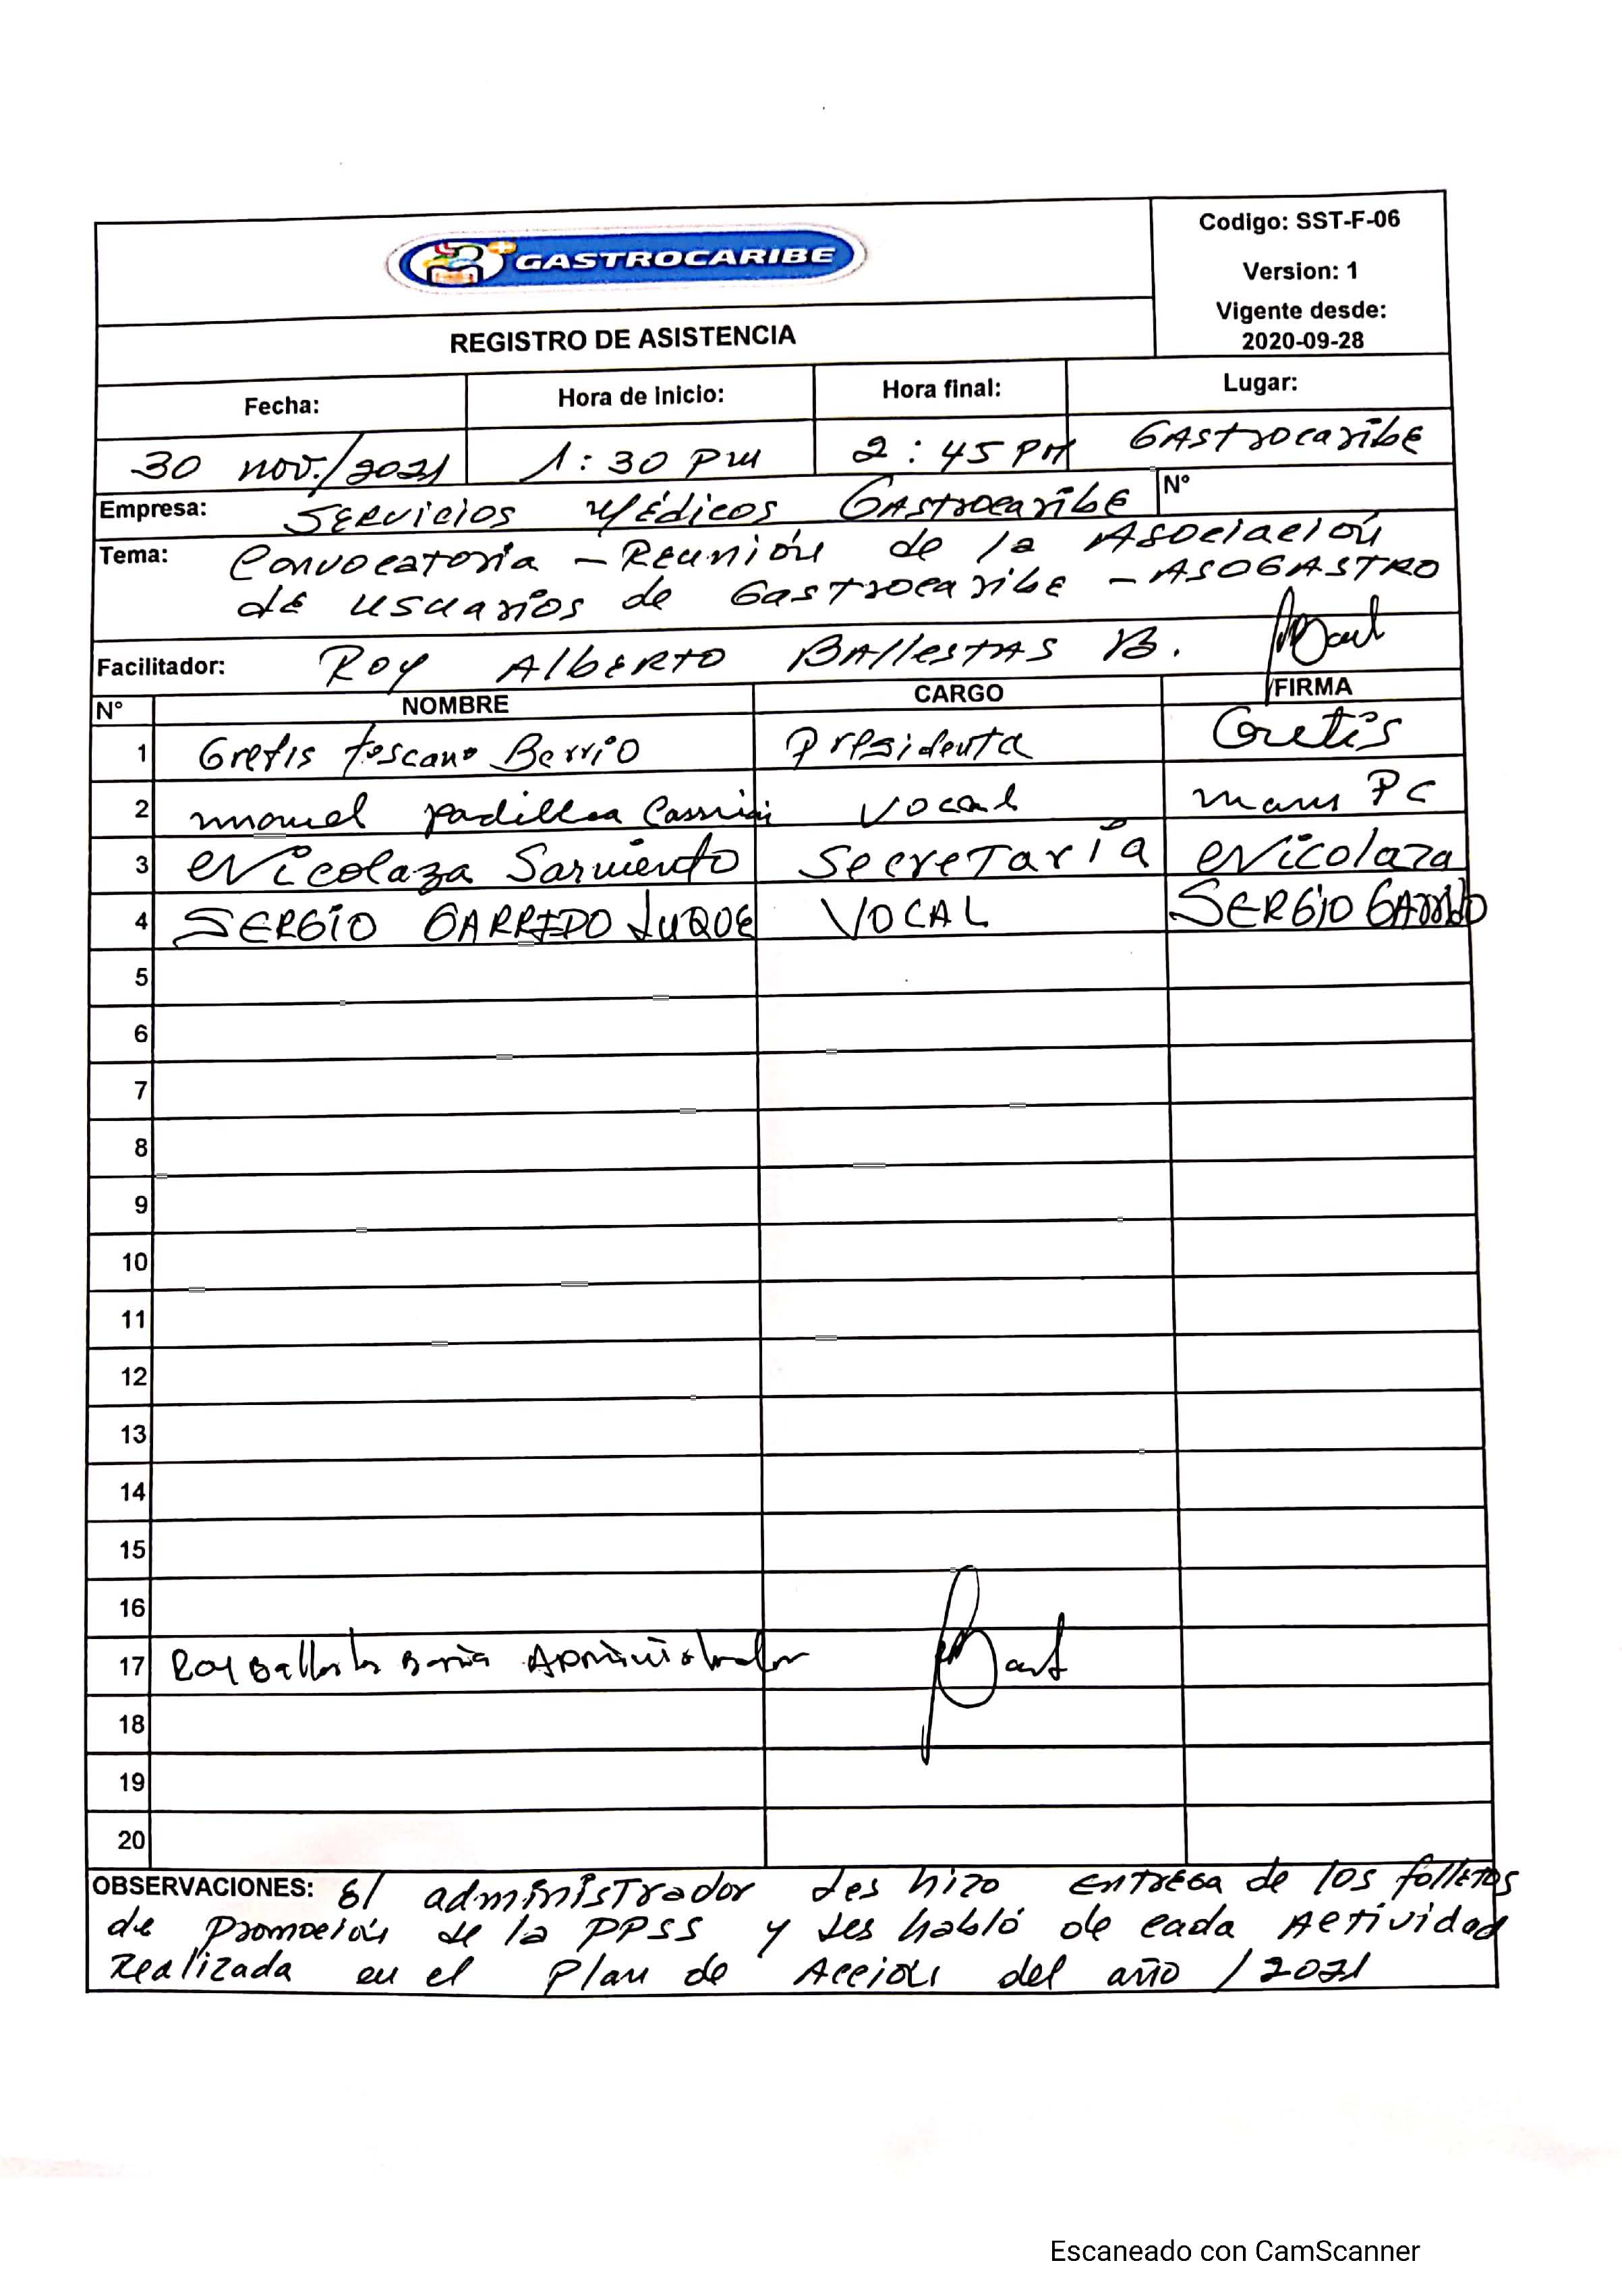 GASTROCARIBE
Codigo: SST-F-06
Version: 1
Vigente desde:
2020-09-28
REGISTRO DE ASISTENCIA
Fecha: Hora de inicio: Hora final: Lugar:
30 nov./2021 1:30 pm 2:45 PM Gastrocaribe
Empresa: Servicios Médicos Gastrocaribe N°
Tema: Convocatoria - Reunión de la Asociación
de usuarios de Gastrocaribe - ASOGASTRO
Facilitador: Roy Alberto Ballestas B.
N° NOMBRE CARGO FIRMA
1 Gretis Toscano Berrio Presidenta Gretis
2 manuel padilla Vocal manu PC
3 Nicolaza Sarmiento Secretaría Nicolaza
4 SERGIO GARRIDO LUQUE VOCAL SERGIO GARRIDO
5
6
7
8
9
10
11
12
13
14
15
16
17 Roy Ballestas Administrador
18
19
20
OBSERVACIONES: El administrador les hizo entrega de los folletos
de promoción de la PPSS y les habló de cada Actividad
Realizada en el Plan de Acción del año /2021
Escaneado con CamScanner